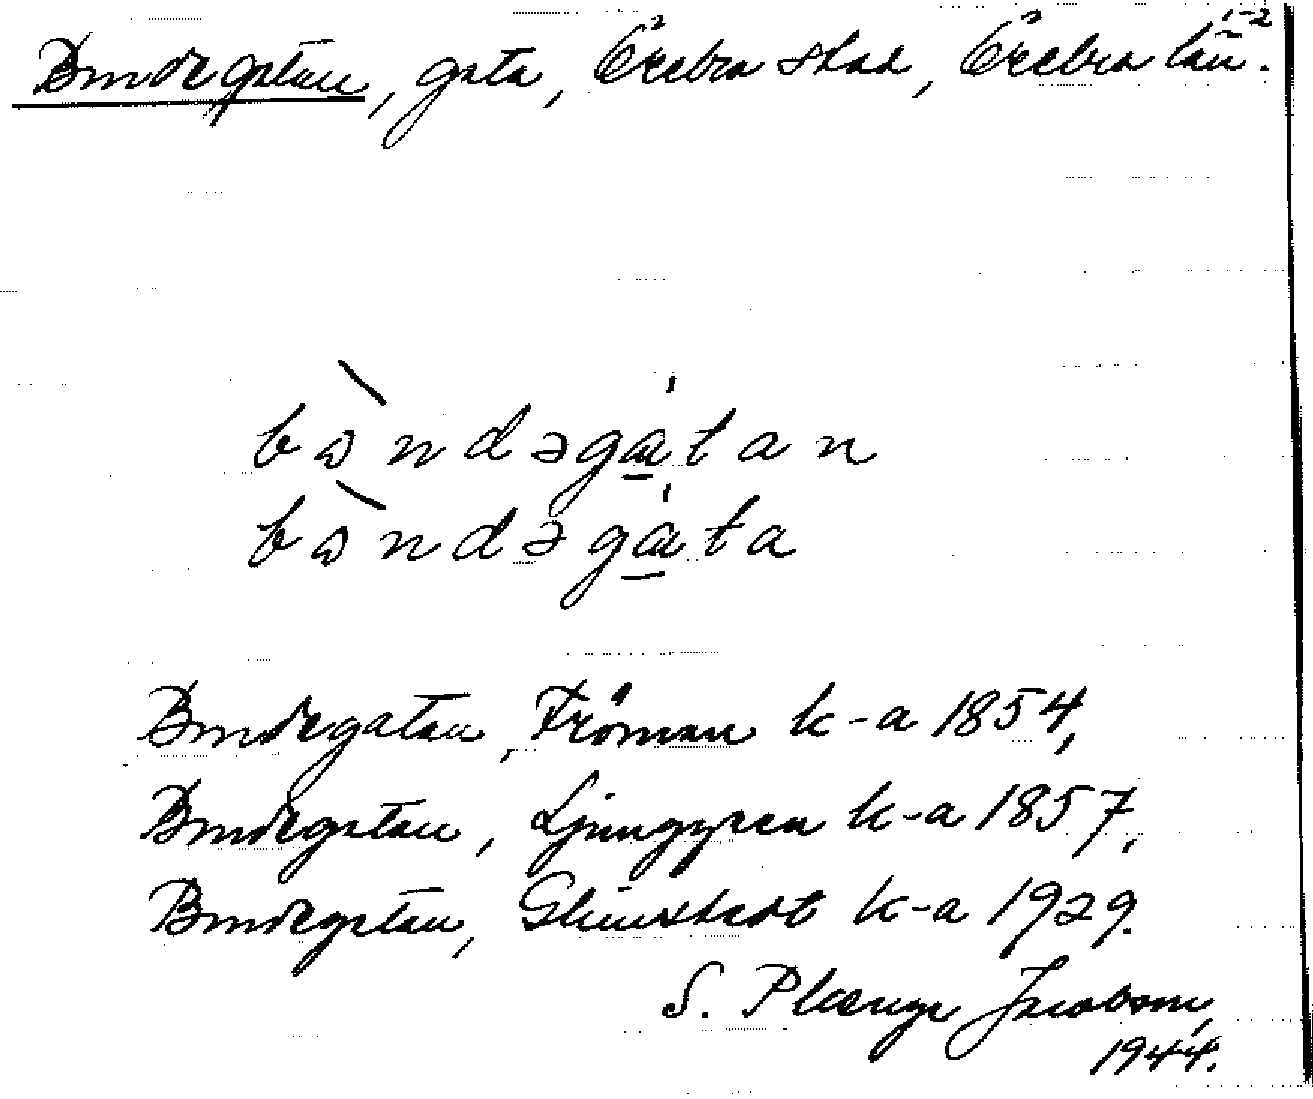 Bondegatan, gata, Örebro stad, Örebro län. 1-2
bɷ̀ndəgá̱tan
bɷ̀ndəgá̱ta
Bondegatan, Fröman k-a 1854,
Bondegatan, Ljunggren k-a 1857,
Bondegatan, Glimstedt k-a 1929.
S. Plænge Jacobson,
1944.